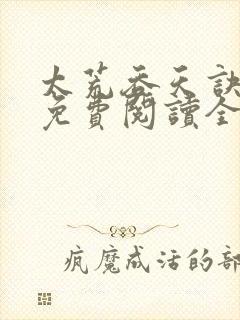 太荒吞天訣
免費閱讀全
疯魔成活的部